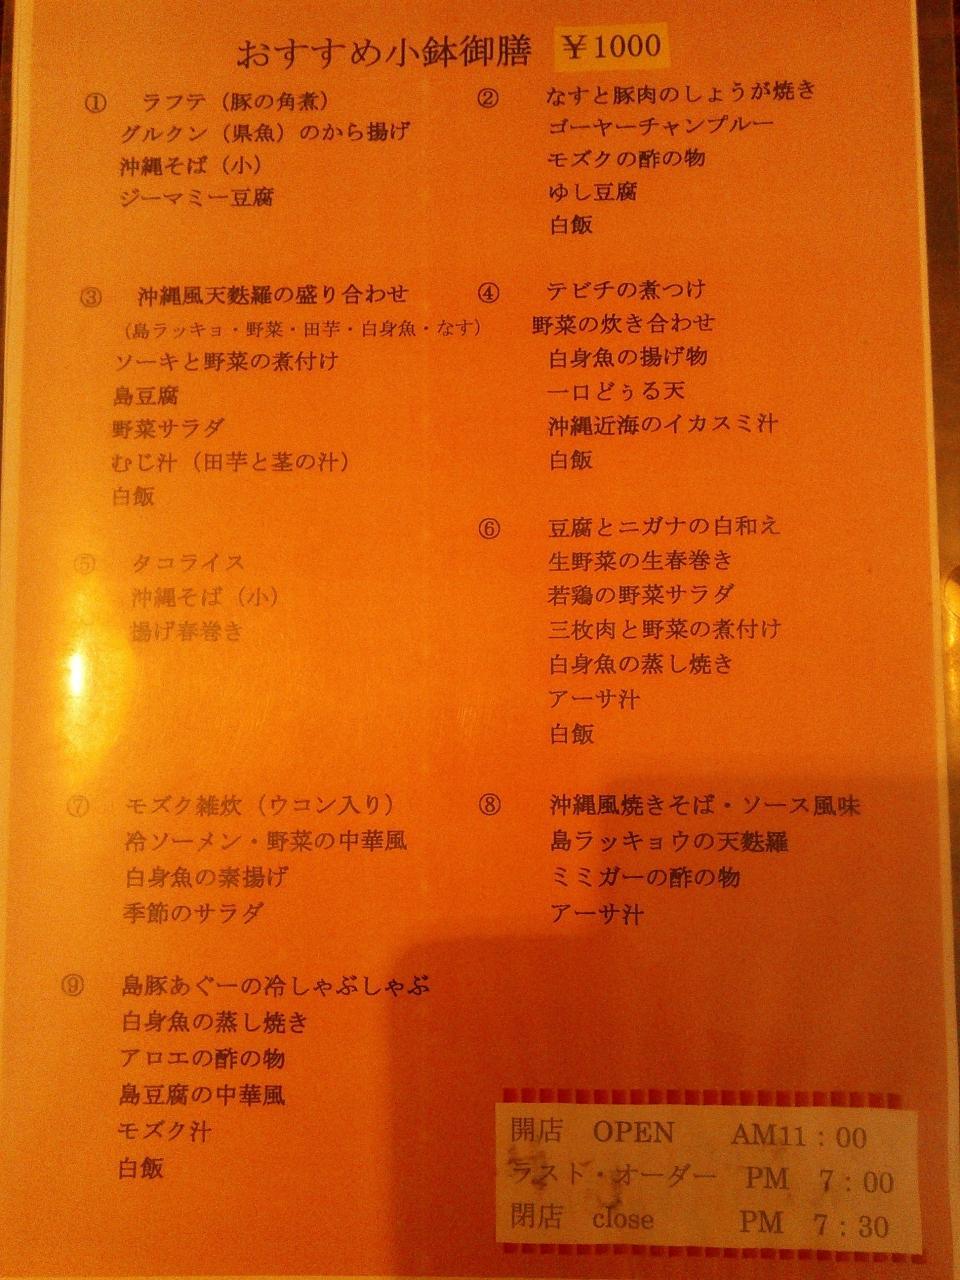 おすすめ小鉢御膳 ￥1000
① ラフテ（豚の角煮）
グルクン（県魚）のから揚げ
沖縄そば（小）
ジーマミー豆腐
② なすと豚肉のしょうが焼き
ゴーヤーチャンプルー
モズクの酢の物
ゆし豆腐
白飯
③ 沖縄風天麩羅の盛り合わせ
（島ラッキョ・野菜・田芋・白身魚・なす）
ソーキと野菜の煮付け
島豆腐
野菜サラダ
むじ汁（田芋と茎の汁）
白飯
④ テビチの煮つけ
野菜の炊き合わせ
白身魚の揚げ物
一口どぅる天
沖縄近海のイカスミ汁
白飯
⑤ タコライス
沖縄そば（小）
揚げ春巻き
⑥ 豆腐とニガナの白和え
生野菜の生春巻き
若鶏の野菜サラダ
三枚肉と野菜の煮付け
白身魚の蒸し焼き
アーサ汁
白飯
⑦ モズク雑炊（ウコン入り）
冷ソーメン・野菜の中華風
白身魚の素揚げ
季節のサラダ
⑧ 沖縄風焼きそば・ソース風味
島ラッキョウの天麩羅
ミミガーの酢の物
アーサ汁
⑨ 島豚あぐーの冷しゃぶしゃぶ
白身魚の蒸し焼き
アロエの酢の物
島豆腐の中華風
モズク汁
白飯
開店 OPEN AM11：00
ラスト・オーダー PM 7：00
閉店 close PM 7：30